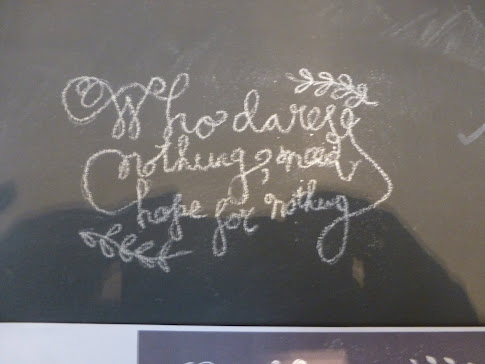 Who dares
nothing, need
hope for nothing